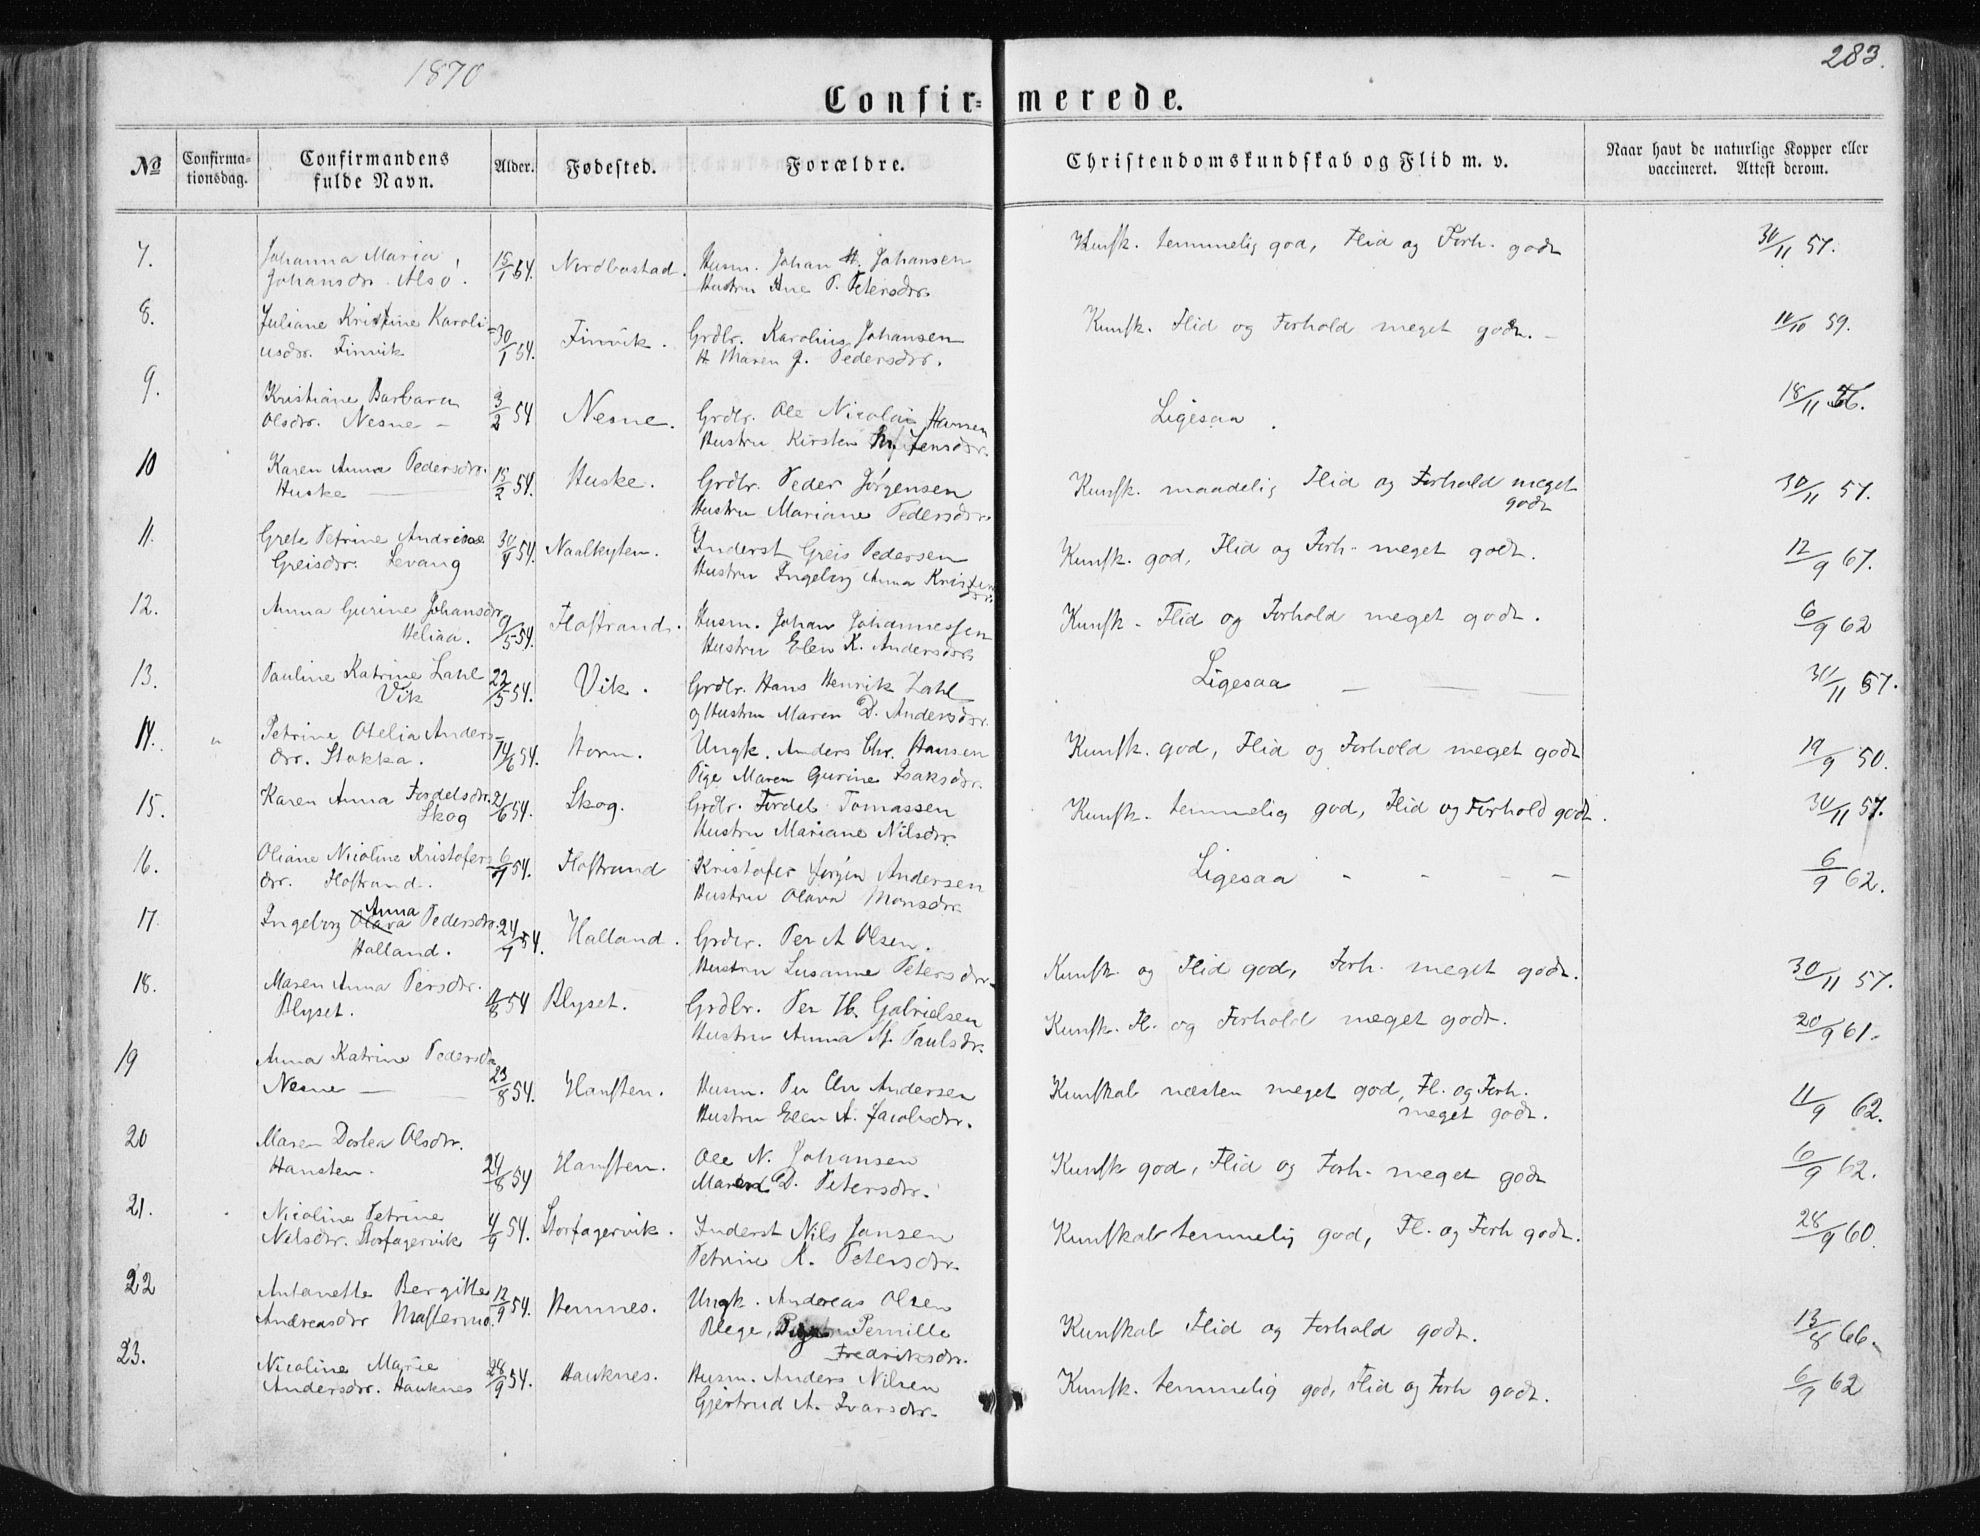 1870
283.
Confir= merede.
No
Confirma-
tionsdag.
Confirmandens
fulde Navn.
Alder.
Fødested.
Forældre.
Christendomskundskab og Flid m. v.
Naar havt de naturlige Kopper eller
vaccineret. Attest derom.
7. Johanna Maria 15/1 54. Nordbostad. Husm. Johan H. Johansen Kunsk. temmelig god, Flid og Forh. godt 30/11 57.
Johansdr. Alsø. Hustru Ane P. Petersdr.
8. Juliane Kristine Karoli- 30/1 54. Finvik. Grdbr. Karolius Johansen Kunsk. Flid og Forhold meget godt. - 14/10 59.
usdr. Finvik H Maren J. Pedersdr.
9. Kristiane Barbara 3/2 54 Nesne. Grdbr. Ole Nicolai Hansen Ligesaa. 18/11 66.
Olsdr. Nesne - Hustru Kirsten M. Jensdr.
10 Karen Anna Pedersdr. 15/2 54. Huske. Grdbr. Peder Jørgensen Kunsk. maadelig Flid og Forhold meget 30/11 57.
Huske - Hustru Mariane Pedersdr. godt
11. Grete Petrine Andrisae 30/4 54. Naalkyten. Inderst Greis Pedersen Kunsk. god, Flid og Forh. meget godt. 12/9 67.
Greisdr. Levang Hustru Ingeborg Anna Kristens
dr.
12. Anna Gurine Johansdr 9/5 54. Flostrand. Husm. Johan Johannessen Kunsk - Flid og Forhold meget godt. 6/9 62
Heliaa. Hustru Elen K. Andersdr.
13. Pauline Katrine Zahl 22/5 54. Vik. Grdbr. Hans Henrik Zahl Ligesaa - - - 30/11 57.
Vik og Hustru Maren D. Andersdr.
14. " Petrine Otelia Anders- 14/6 54. Horn. Ungk. Anders Chr. Hansen Kunsk. god, Flid og Forhold meget godt 19/9 50.
dr. Stokka. Pige Maren Gurine Isaksdr.
15. Karen Anna Fordelsdr. 21/6 54. Skog. Grdbr. Fordel Tomassen Kunsk. temmelig god, Flid og Forhold godt. 30/11 57.
Skog Hustru Mariane Nilsdr.
16. Oliane Nicoline Kristofers 6/7 54. Flostrand Kristofer Jørgen Andersen Ligesaa - - - - 6/9 62.
dr. Flostrand. Hustru Olava Monsdr.
17 Ingeborg Olava Anna Pedersdr. 24/7 54. Halland. Grdbr. Per A Olsen. Kunsk. og Flid god, Forh. meget godt. 30/11 57.
Halland. Hustru Susanne Petersdr.
18. Maren Anna Persdr. 11/8 54 Blyset. Grdbr. Per Th. Gabrielsen Kunsk. Fl. og Forhold meget godt. 20/9 61.
Blyset. Hustru Anna M. Paulsdr.
19 Anna Katrine Pedersdr 23/8 54. Hansten. Husm. Per Chr Andersen Kunskab næsten meget god, Fl. og Forh. 11/9 62.
Nesne - Hustru Elen A. Jacobsdr. meget godt.
20 Maren Dortea Olsdr. 24/8 54 Hansten. Ole N. Johansen Kunsk god, Flid og Forh. meget godt 6/9 62.
Hansten. Maren D. Petersdr.
21. Nicoline Petrine 4/9 54. Storfagervik. Inderst Nils Jansen Kunskab temmelig god, Fl. og Forh godt. 28/9 60.
Nilsdr. Storfagervik Petrine K. Petersdr.
22 Antonette Bergitte 12/9 54. Hemnes. Ungk. Andreas Olsen Kunskab Flid og Forhold godt. 13/8 66.
Andreasdr Mastermo. Pige Pernille
Fredriksdr.
23. Nicoline Marie 28/9 54. Hauknes. Husm. Anders Nilsen Kunsk. temmelig god, Flid og Forh godt. 6/9 62
Andersdr. Hauknes Gjertrud A. Ivarsdr.